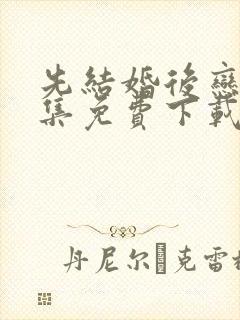 先結婚後戀
集免費下載
丹尼尔克雷